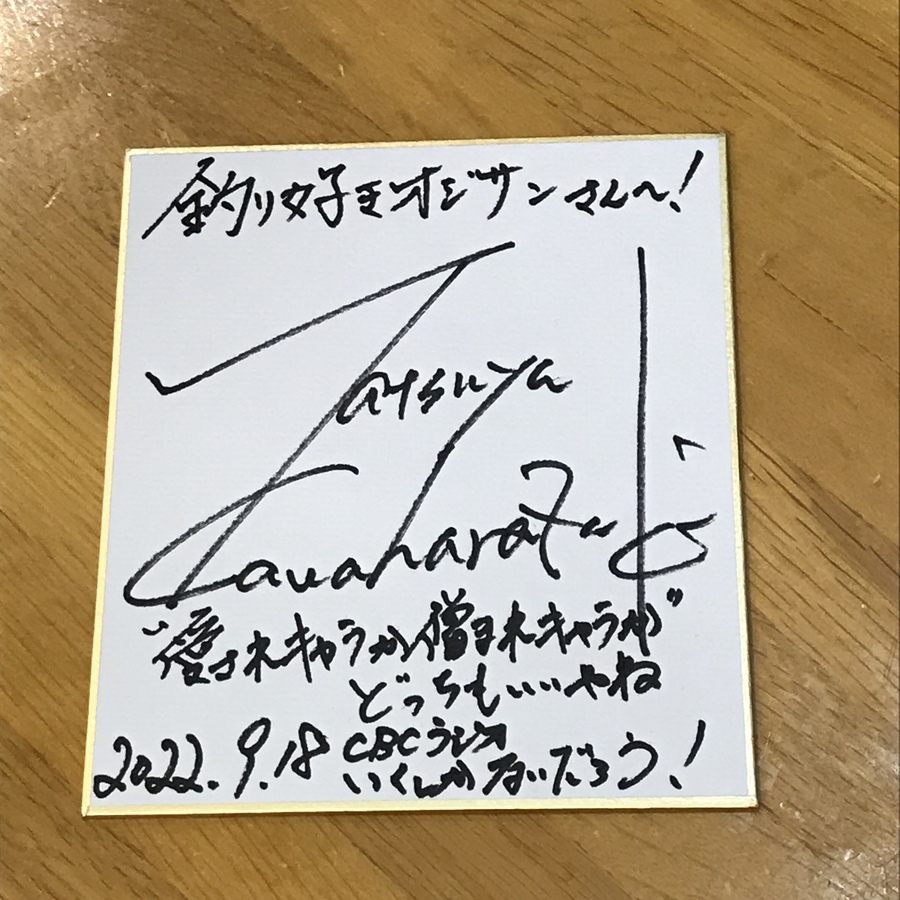 釣り好きオジサンさんへ!
Tatsuya
Kawahara
"愛されキャラか憎まれキャラか"
どっちもいいやね
2022.9.18 CBCラジオ
いくしかないだろう!